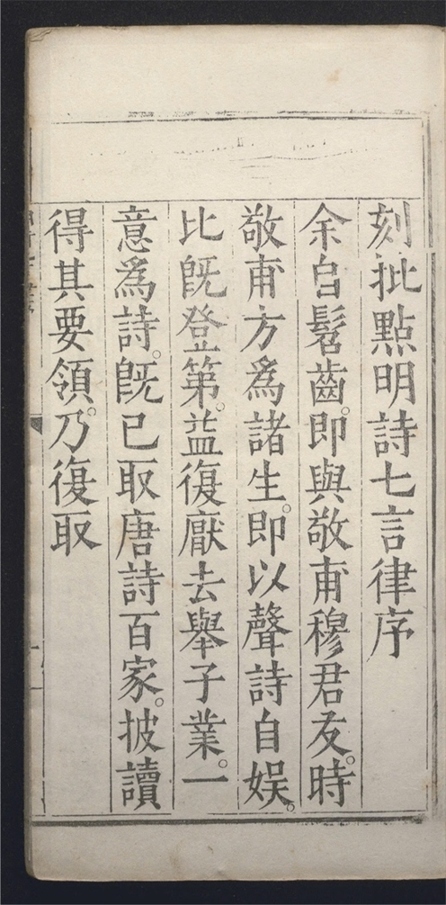 刻批點明詩七言律序
余自髫齒。即與敬甫穆君友。時
敬甫方為諸生。即以聲詩自娛。
比旣登第。益復厭去舉子業。一
意為詩。旣已取唐詩百家。披讀
得其要領。乃復取